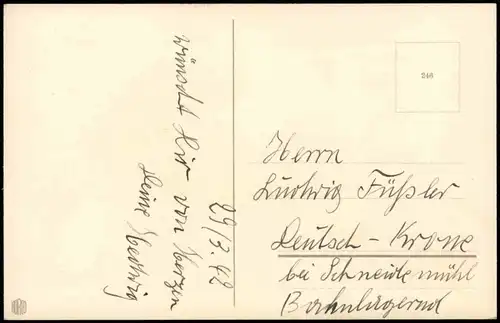 wünscht Dir von Herzen
Deine Hedwig
29/3.42
246
Herrn
Ludwig Füßler
Deutsch-Krone
bei Schneidemühl